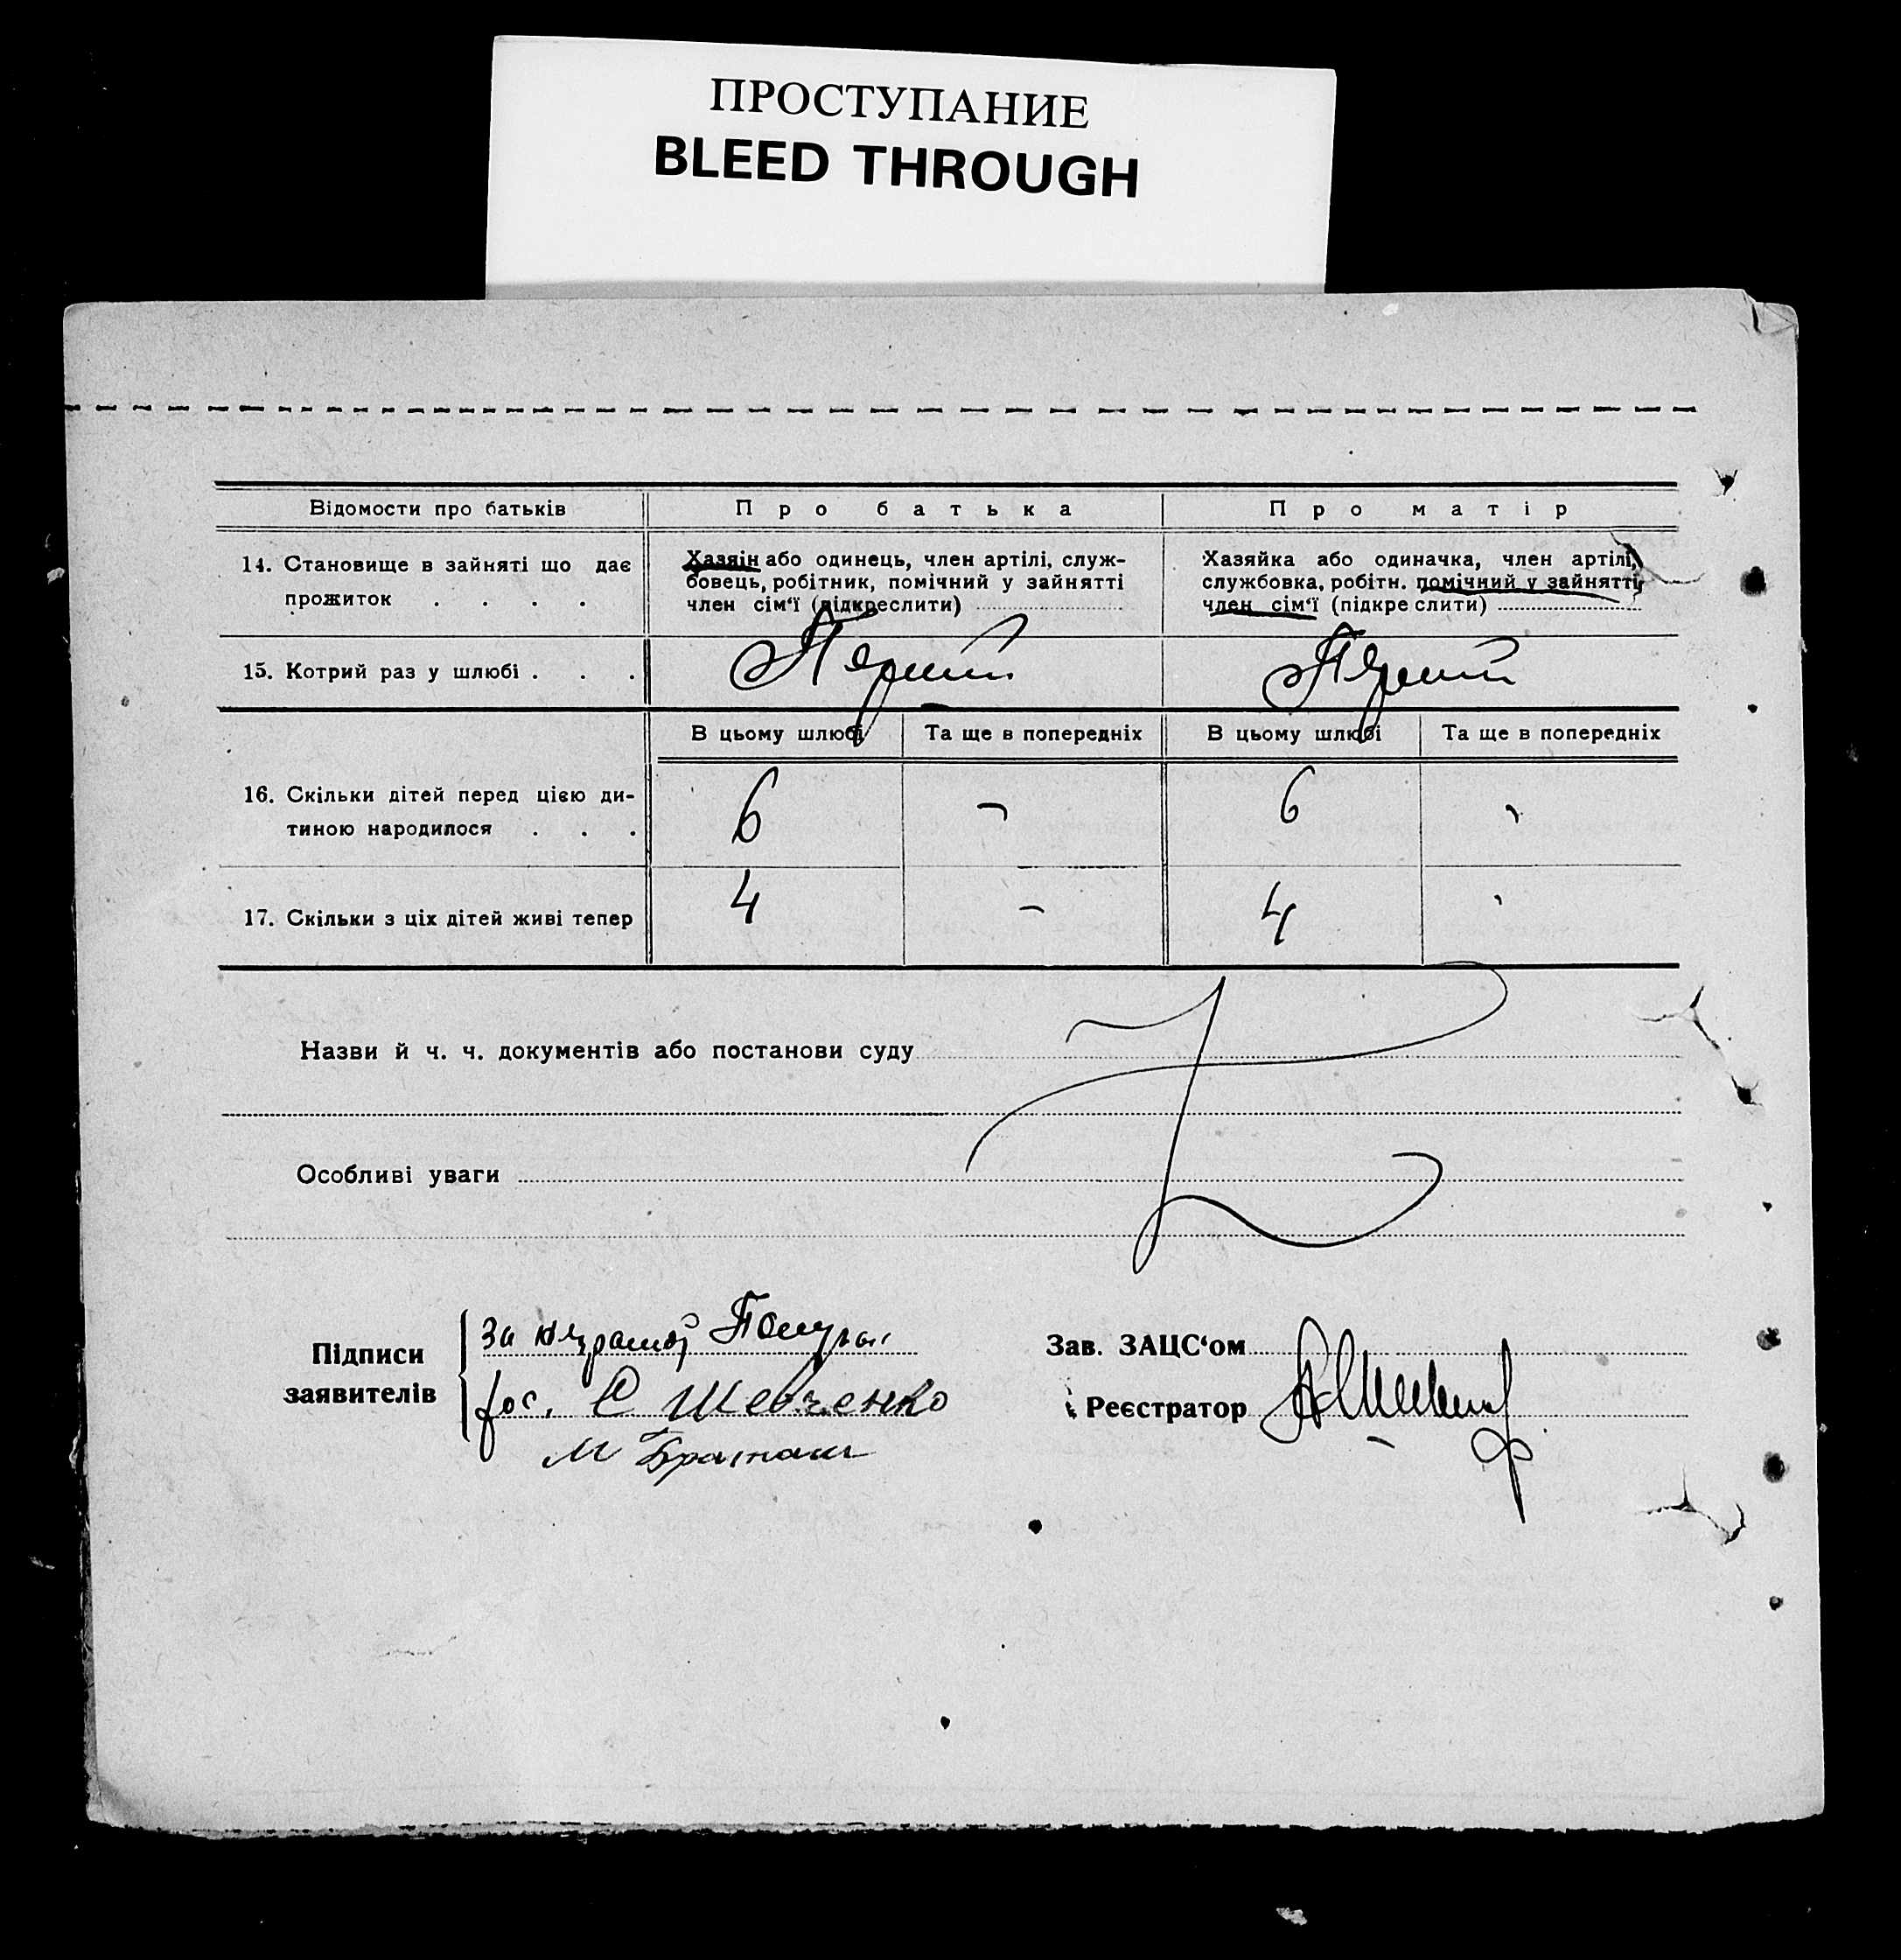 ПРОСТУПАНИЕ
BLEED THROUGH
Відомости про батьків
Про батька
Про матір
14. Становище в зайняті що дає
прожиток . . . .
Хазяін або одинець, член артілі, служ-
бовець, робітник, помічний у зайнятті
член сім'ї (підкреслити)
Хазяйка або одиначка, член артілі,
службовка, робітн. помічний у зайнятті
член сім'ї (підкреслити)
15. Котрий раз у шлюбі . . .
Перший
Перший
В цьому шлюбі
Та ще в попередніх
В цьому шлюбі
Та ще в попередніх
16. Скільки дітей перед цією ди-
тиною народилося . . .
6
-
6
-
17. Скільки з ціх дітей живі тепер
4
-
4
-
Назви й ч. ч. документів або постанови суду
Особливі уваги
Підписи
заявителів
За
С Шевченко
М
Зав. ЗАЦС'ом
Реєстратор